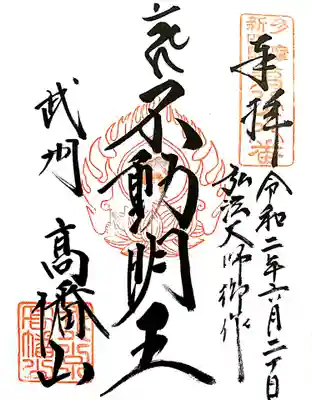 奉拝
令和二年六月二十日
弘法大師御作
不動明王
武州
高幡山